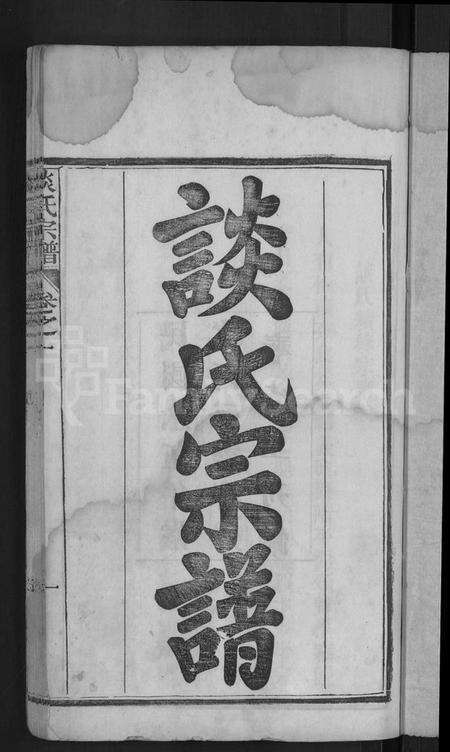 談氏宗譜
談氏宗譜 卷之一
FamilySearch